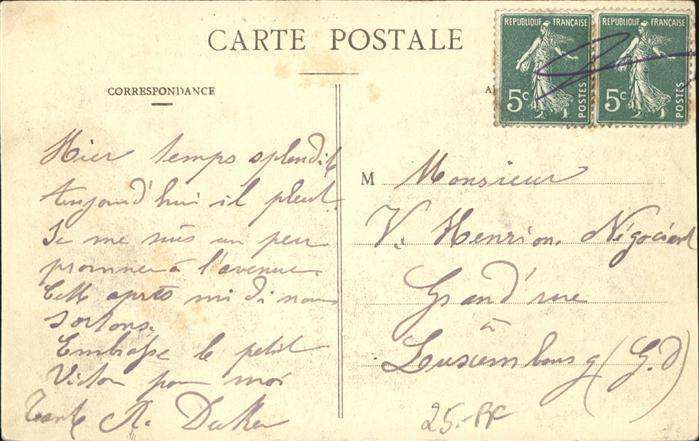 CARTE POSTALE
REPUBLIQUE FRANÇAISE
5c POSTES
REPUBLIQUE FRANÇAISE
5c POSTES
CORRESPONDANCE
Hier temps splendide
Aujourd'hui il pleut.
Je me suis un peu
promener à l'avenue
Cett après midi nous
sortons.
Embrasse le petit
Victor pour moi
M Monsieur
V. Henrion, Négociant
Grand'rue
à
Louxembourg (G.D)
25.-BF